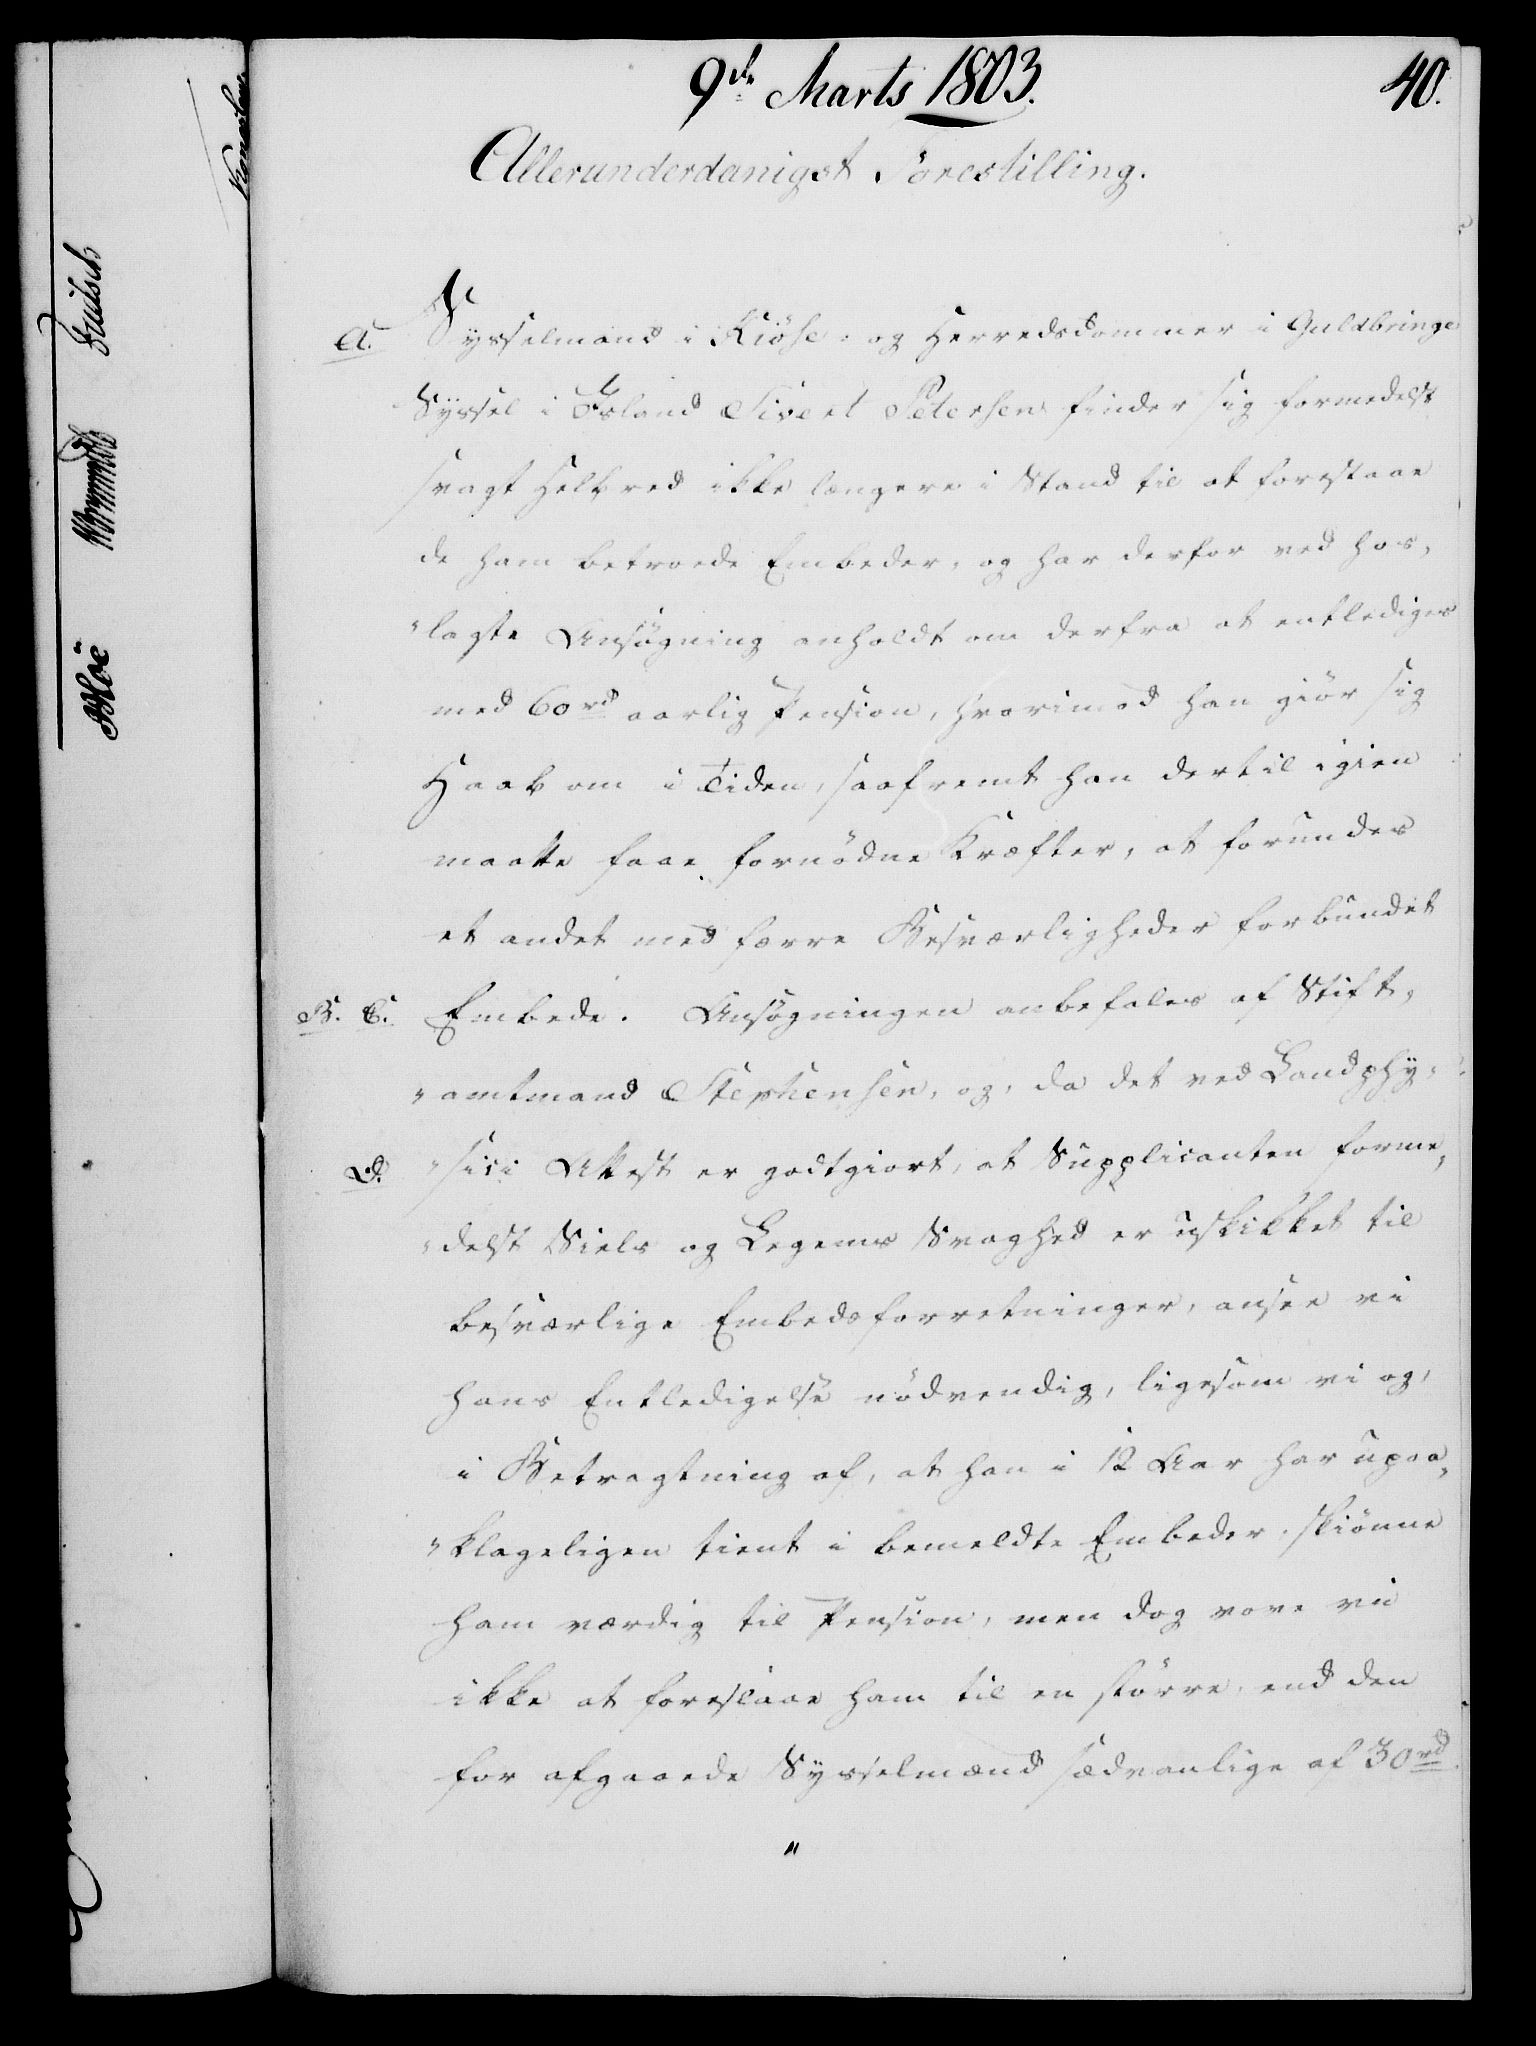 9de Marts 1803.
40.
Allerunderdanigst Forestilling.
A. Sysselmand i Kiöse- og Herredsdommer i Guldbringe
Syssel i Island Sivert Petersen finder sig formedelst
svagt Helbred ikke længere i Stand til at forestaae
de ham betroede Embeder, og har derfor ved hos-
"lagte Ansøgning anholdt om derfra at entlediges
med 60 rd aarlig Pension, hvorimod han giör sig
Haab om i Tiden, saafremt han dertil igien
maatte faae fornödne Kræfter, at forundes
et andet med færre Besværligheder forbundet
B. C. Embede. Ansögningen anbefales af Stift-
"amtmand Stephensen, og, da det ved Landphy-
D. "sici Attest er godtgiort, at Supplicanten forme-
"delst Siels og Legems Svaghed er uskikket til
besværlige Embedsforretninger, ansee vi
hans Entledigelse nödvendig, ligesom vi og,
i Betragtning af, at han i 12 Aar har upaa-
"klageligen tient i bemeldte Embeder, skiönne
ham værdig til Pension, men dog vove vi
ikke at foreslaae ham til en större, end den
for afgaaede Sysselmænd sædvanlige af 30 rd.
"